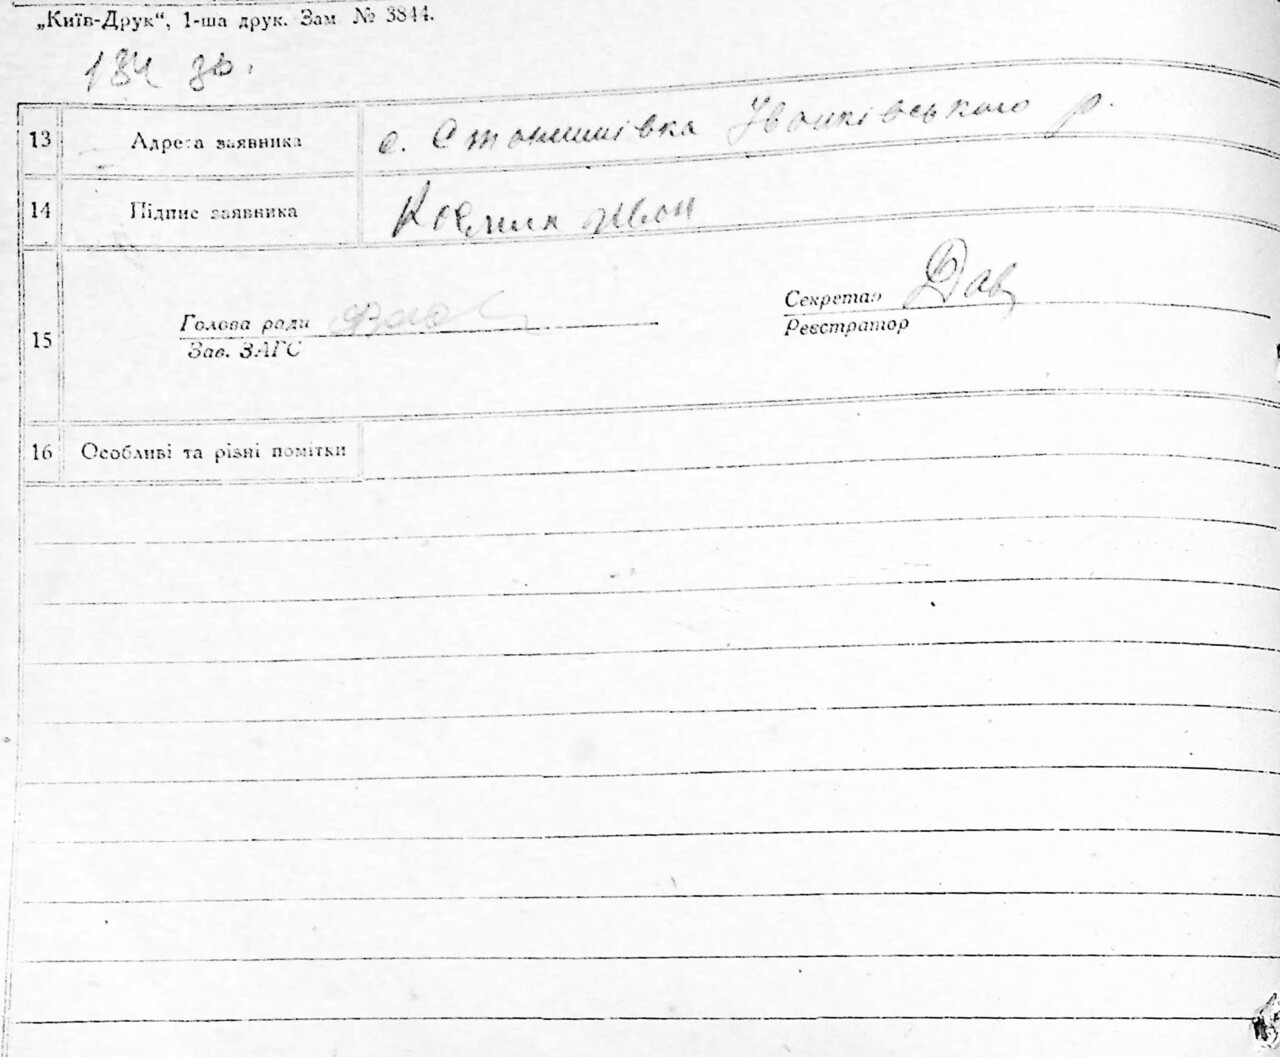 „Київ-Друк“, 1-ша друк. Зам № 3844.
184 зв.
13 Адреса заявника с. Станишівка Іванківського р.
14 Підпис заявника Іван
15 Голова ради Секретар
Зав. ЗАГС Реєстратор
16 Особливі та різні помітки